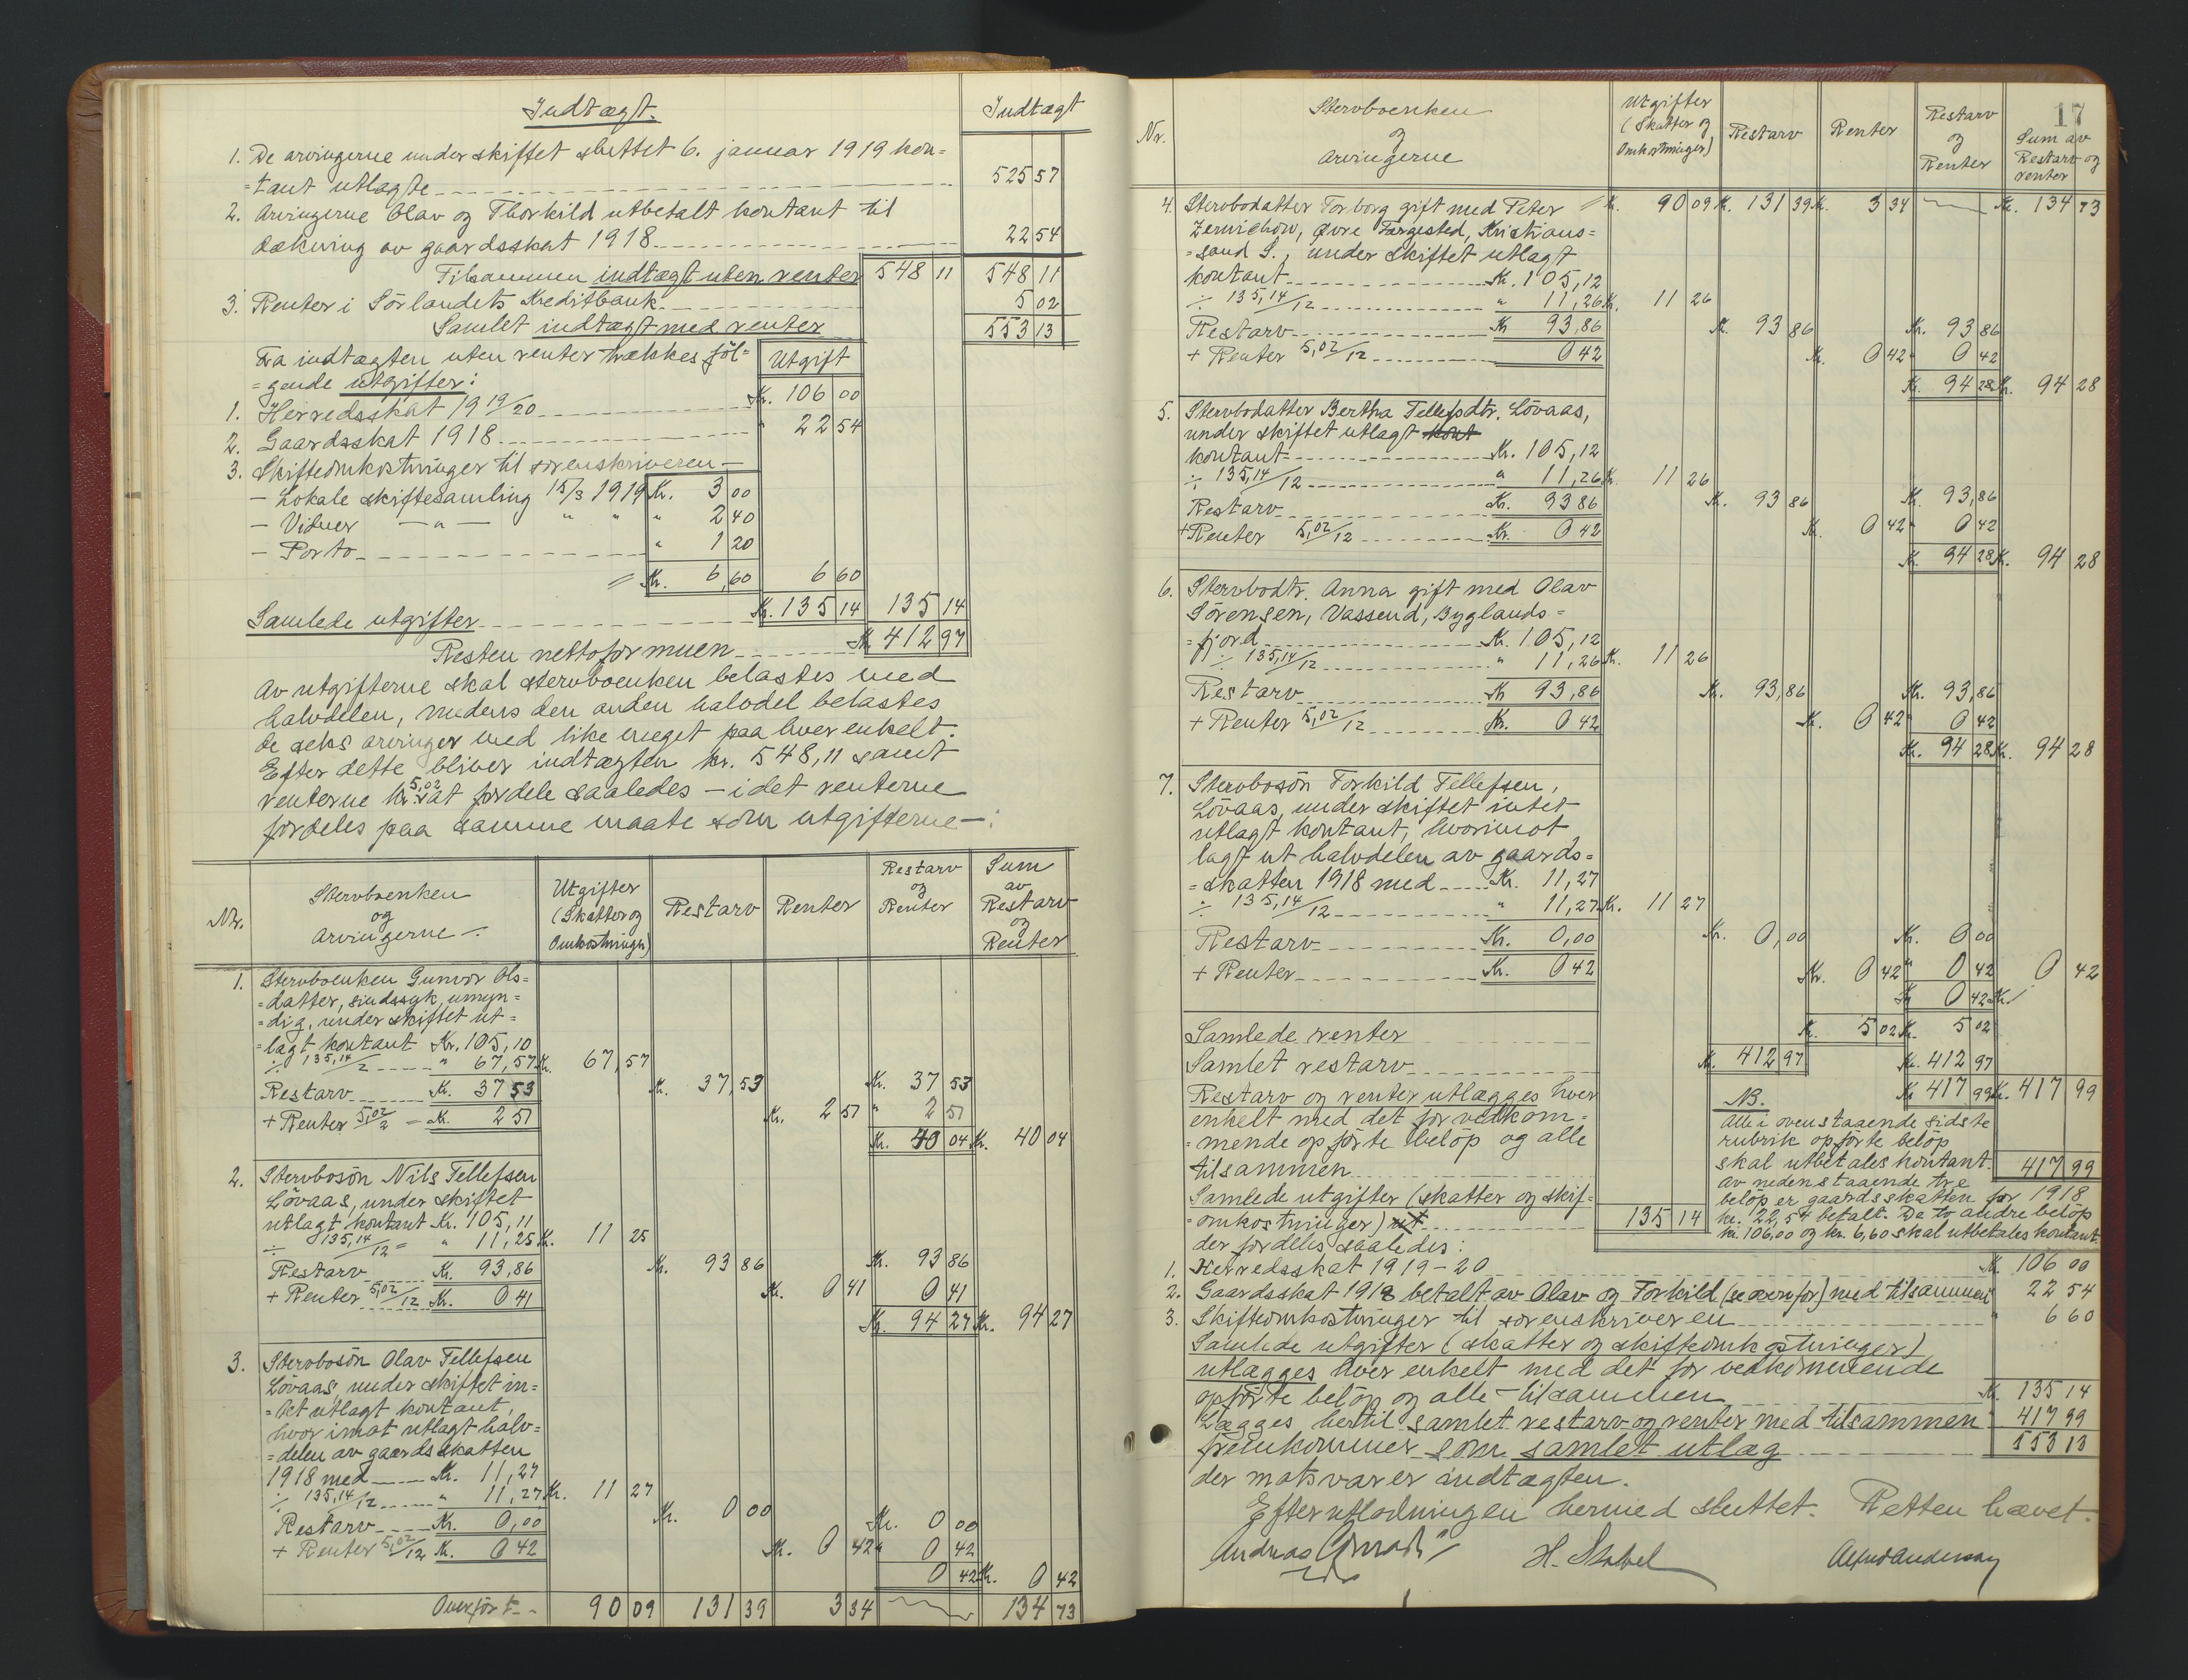 Indtægt.
Indtægt
1. De arvingerne under skiftet sluttet 6. januar 1919 kon=
=tant utlagte 525 57
2. Arvingerne Olav og Thorkild utbetalt kontant til
dækning av gaardsskat 1918 22 54
Tilsammen indtægt uten renter 548 11 548 11
3. Renter i Sörlandets Kreditbank 5 02
Samlet indtægt med renter 553 13
Fra indtægten uten renter trækkes föl= Utgift
=gende utgifter:
1. Herredsskat 19 19/20 Kr. 106 00
2. Gaardsskat 1918 " 22 54
3. Skifteomkostninger til sorenskriveren —
— Lokale skiftesamling 15/3 1919 Kr. 3 00
— Vidner — " — " " " 2 40
— Porto " 1 20
= Kr. 6,60 6 60
Samlede utgifter Kr. 135 14 135 14
Resten nettoformuen Kr. 412 97
Av utgifterne skal stervboenken belastes med
halvdelen, medens den anden halvdel belastes
de seks arvinger med like meget paa hver enkelt.
Efter dette bliver indtægten kr. 548,11 samt
renterne kr. 5,02 at fordele saaledes — idet renterne
fordeles paa samme maate som utgifterne —:
Nr.
Stervboenken
og
Arvingerne —.
Utgifter
(Skatter og
Omkostninger)
Restarv
Renter
Restarv
og
Renter
Sum
av
Restarv
og
Renter
1. Stervboenken Gunvor Ols=
=datter, sindssyk, umyn=
=dig, under skiftet ut=
=lagt kontant Kr. 105,10
÷ 135,14/2 " 67,57 Kr. 67,57
Restarv Kr. 37 53 Kr. 37,53 Kr. 37 53
+ Renter 5,02/2 = Kr. 2 51 Kr. 2 51 " 2 51
Kr. 40 04 Kr. 40 04
2. Stervbosön Nils Tellefsen
Lövaas, under skiftet
utlagt kontant Kr. 105,11
÷ 135,14/12 = " 11,25 Kr. 11 25
Restarv Kr. 93,86 Kr. 93 86 Kr. 93 86
+ Renter 5,02/12 Kr. 0 41 Kr. 0 41 0 41
Kr. 94 27 Kr. 94 27
3. Stervbosön Olav Tellefsen
Lövaas, under skiftet in=
=tet utlagt kontant,
hvorimot utlagt halv=
=delen av gaardsskatten
1918 med Kr. 11,27
÷ 135,14/12 " 11,27 Kr. 11 27
Restarv Kr. 0,00 Kr. 0 00 Kr. 0 00
+ Renter 5,02/12 Kr. 0 42 Kr. 0 42 " 0 42
0 42 Kr. 0 42
Overfört — 90 09 131 39 3 34 134 73
17
Nr.
Stervboenken
og
Arvingerne
Utgifter
(Skatter og
Omkostninger)
Restarv
Renter
Restarv
og
Renter
Sum av
Restarv og
renter
4. Stervbodatter Torborg gift med Peter = Kr. 90 09 Kr. 131 39 Kr. 3 34 Kr. 134 73
Zernichow, Övre Torgested, Kristians=
=sand S., under skiftet utlagt
kontant Kr. 105,12
÷ 135,14/12 " 11,26 Kr. 11 26
Restarv Kr 93,86 Kr. 93 86 Kr. 93 86
+ Renter 5,02/12 0 42 Kr. 0 42 " 0 42
Kr. 94 28 Kr. 94 28
5. Stervbodatter Bertha Tellefsdtr. Lövaas,
under skiftet utlagt kont
kontant Kr. 105,12
÷ 135,14/12 " 11,26 Kr. 11 26
Restarv Kr. 93 86 Kr. 93 86 Kr. 93,86
+ Renter 5,02/12 Kr. 0 42 Kr. 0 42 " 0 42
Kr. 94 28 Kr. 94 28
6. Stervbodtr. Anna gift med Olav
Sörensen, Vassend, Byglands=
=fjord Kr. 105,12
÷ 135,14/12 " 11,26 Kr. 11 26
Restarv Kr 93,86 Kr. 93,86 Kr. 93,86
+ Renter 5,02/12 Kr. 0 42 Kr. 0 42 " 0 42
Kr. 94 28 Kr. 94 28
7. Stervbosön Torkild Tellefsen,
Lövaas, under skiftet intet
utlagt kontant, hvorimot
lagt ut halvdelen av gaards=
=skatten 1918 med Kr. 11,27
÷ 135,14/12 " 11,27 Kr. 11 27
Restarv Kr. 0,00 Kr. 0,00 Kr. 0 00
+ Renter Kr. 0 42 Kr. 0 42 " 0 42 0 42
Kr 0 42 Kr
Samlede renter Kr. 5 02 Kr. 5 02
Samlet restarv Kr. 412 97 Kr. 412 97
Restarv og renter utlægges hver Kr 417 99 Kr. 417 99
enkelt med det for vedkom=
=mende opförte belöp og alle
tilsammen 417 99
NB.
Alle i ovenstaaende sidste
rubrik opförte belöp
skal utbetales kontant.
Av nedenstaaende tre
belöp er gaardsskatten for 1918
kr. 22,54 betalt. De to andre belöp
kr. 106,00 og kr. 6,60 skal utbetales kontant
Samlede utgifter (skatter og skif=
=omkostninger) ut 135 14
der fordeles saaledes:
1. Herredsskat 1919-20 Kr. 106 00
2. Gaardsskat 1918 betalt av Olav og Torkild (se ovenfor) med tilsammen " 22 54
3. Skifteomkostninger til sorenskriveren " 6 60
Samlede utgifter (skatter og skifteomkostninger)
utlægges hver enkelt med det for vedkommende
opförte belöp og alle tilsammen Kr. 135 14
Lægges hertil samlet restarv og renter med tilsammen 417 99
fremkommer som samlet utlag 553 13
der motsvarer indtægten.
Efter utlodningen hermed sluttet. Retten hævet.
Andreas
H. Stabel
Alfred Andersen